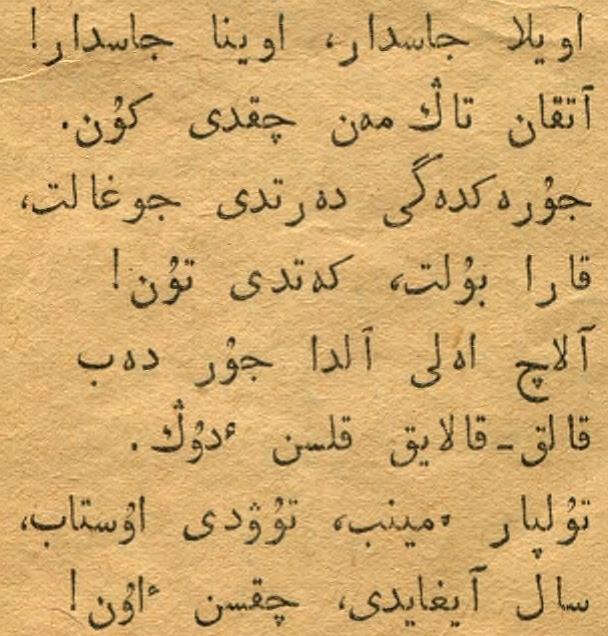 اويلا جاسدار، اوينا جاسدار!
آتقان تاڭ مەن چقدى كۇن.
جۇرەكدەگى دەرتدى جوغالت،
قارا بۇلت، كەتدى تۇن!
آلاچ اەلى آلدا جۇر دەب
قالق-قالايق قلسن ٴدۇڭ.
تۇلپار ٴمينب، تۇۋدى اۇستاب،
سال آيغايدى، چقسن ٴاۇن!